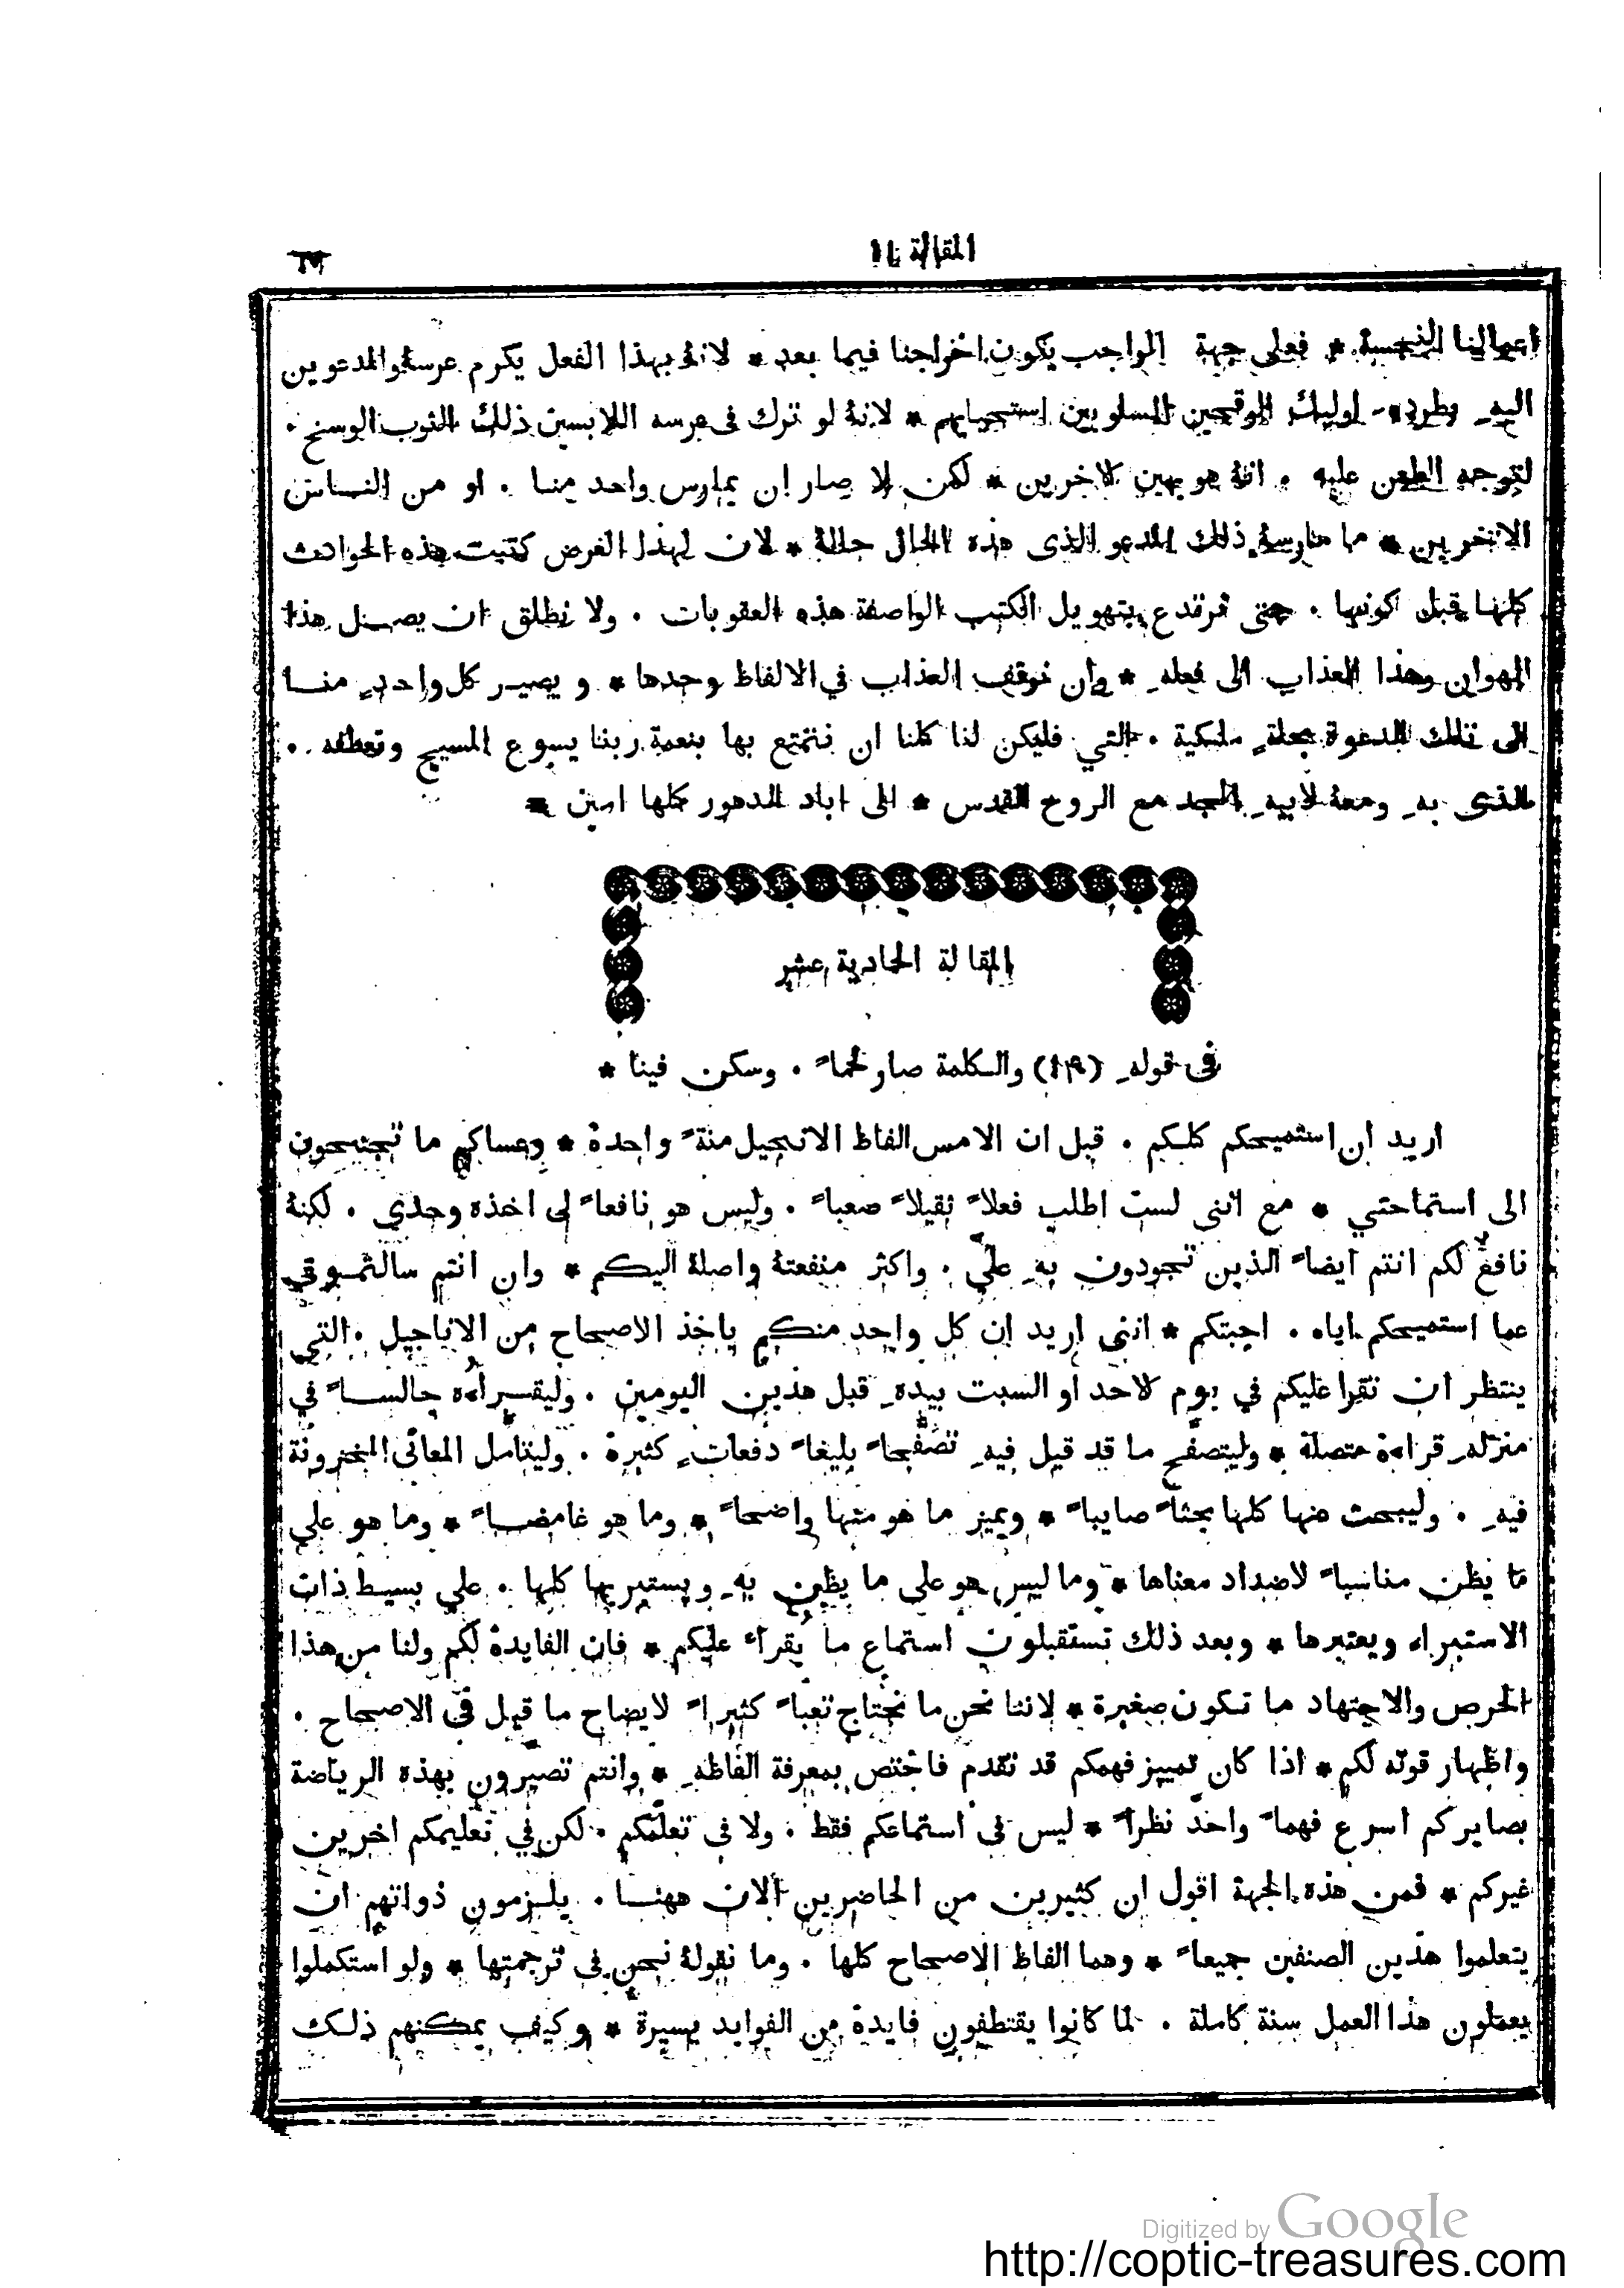 المقالة ١١
اعمالنا النجسة * فعلى جهة الواجب يكون اخراجنا فيما بعد * لانهُ بهذا الفعل يكرم عرسهُ والمدعوين
اليهِ وطرده اوليك الوقحين المسلوبين استحياهم * لانهُ لو ترك فى عرسه اللابسين ذلك الثوب الوسخ .
لتوجه الطعن عليه . انهُ هو يهين الاخرين * لكن لا صار ان يمارس واحد منا . او من الناس
الاخرين * ما مارسهُ ذلك المدعو الذى هذه الحال حالهُ * لان لهذا الغرض كتبت هذه الحوادث
كلها قبل كونها . حتى نرتدع بتهويل الكتب الواصفة هذه العقوبات . ولا نطلق ان يصل هذا
الهوان وهذا العذاب الى فعلهِ * وان نوقف العذاب في الالفاظ وحدها * ويصير كل واحدٍ منا
الى تلك الدعوة بحلةٍ ملكية . التي فليكن لنا كلنا ان نتمتع بها بنعمة ربنا يسوع المسيح وتعطفه .
الذى بهِ ومعهُ لابيهِ المجد مع الروح القدس * الى اباد الدهور كلها امين *
المقالة الحادية عشر
فى قولهِ (١٤) والكلمة صار لحماً . وسكن فينا *
اريد ان استميحكم كلكم . قبل ان الامس الفاظ الانجيل منةً واحدة * وعساكم ما تجنحون
الى استماحتي * مع اننى لست اطلب فعلاً ثقيلاً صعباً . وليس هو نافعاً لى اخذه وحدي . لكنهُ
نافعٌ لكم انتم ايضاً الذين تجودون بهِ عليّ . واكثر منفعتهُ واصلة اليكم * وان انتم سالتموني
عما استميحكم اياه . اجبتكم * اننى اريد ان كل واحد منكم ياخذ الاصحاح من الاناجيل . التي
ينتظر ان تقرا عليكم في يوم الاحد او السبت بيدهِ قبل هذين اليومين . وليقسراءه جالساً في
منزلهِ قراءة متصلة * وليتصفح ما قد قيل فيهِ تصفحاً بليغاً دفعاتٍ كثيرة . وليتامل المعانى المخزونة
فيهِ . وليبحث عنها كلها بحثاً صايباً * ويميز ما هو منها واضحاً * وما هو غامضاً * وما هو علي
ما يظن مناسباً لاضداد معناها * وما ليس هو على ما يظن بهِ ويستبريها كلها . علي بسيط ذات
الاستبراء ويعتبرها * وبعد ذلك تستقبلون استماع ما يُقراء عليكم * فان الفايدة لكم ولنا من هذا
الحرص والاجتهاد ما تكون صغيرة * لاننا نحن ما نحتاج تعباً كثيراً لايضاح ما قيل في الاصحاح .
واظهار قوته لكم * اذا كان تمييز فهمكم قد تقدم فاختص بمعرفة الفاظهِ * وانتم تصيرون بهذه الرياضة
بصايركم اسرع فهماً واحدّ نظراً * ليس فى استماعكم فقط . ولا فى تعلمكم . لكن في تعليمكم اخرين
غيركم * فمن هذه الجهة اقول ان كثيرين من الحاضرين الان ههنا . يلزمون ذواتهم ان
يتعلموا هذين الصنفين جميعاً * وهما الفاظ الاصحاح كلها . وما نقولهُ نحن فى ترجمتها * ولو استكملوا
يعملون هذا العمل سنة كاملة . لما كانوا يقتطفون فايدة من الفوايد يسيرة * وكيف يمكنهم ذلك
Digitized by Google
http://coptic-treasures.com